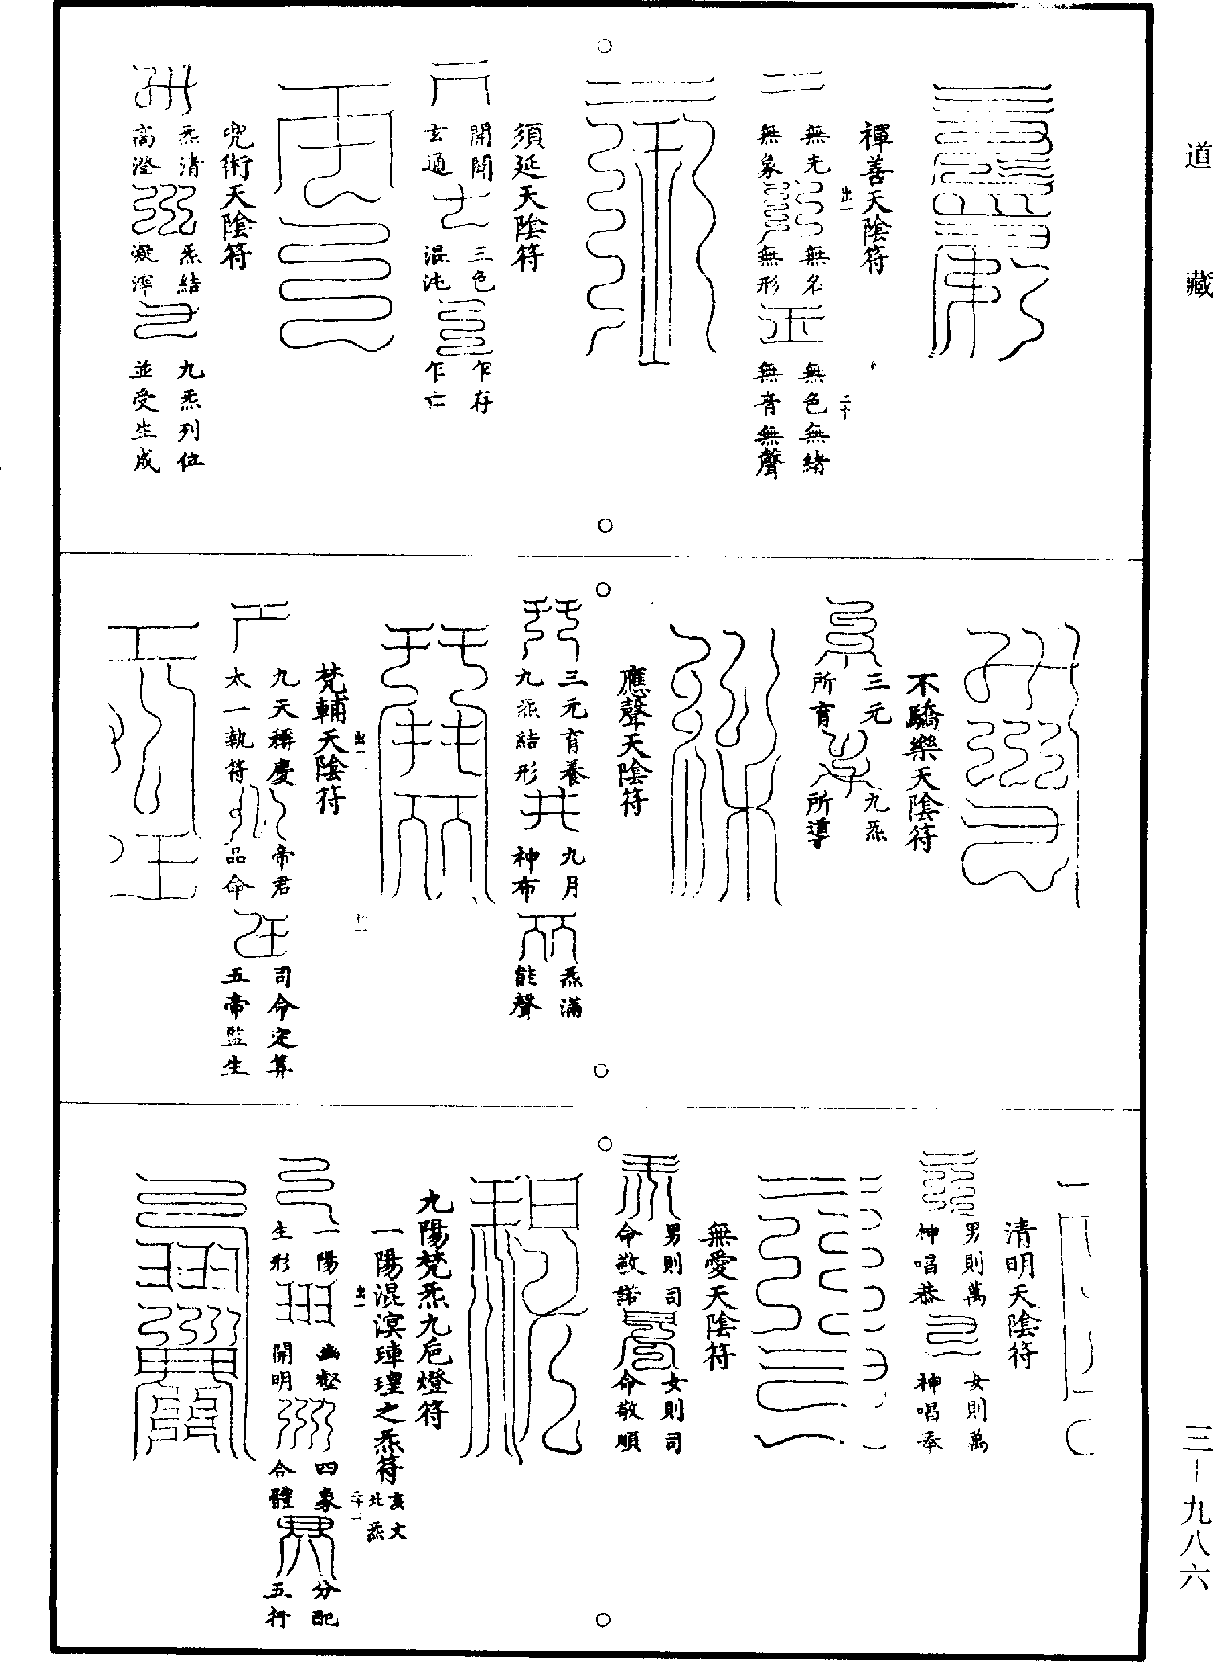 道藏
三—九八六
禪善天陰符
無光無象
無名無形
無色無緒無音無聲
須延天陰符
開關玄通
三色混沌
乍存乍亡
兜術天陰符
炁清高澄
炁結凝滓
九炁列位並受生成
不驕樂天陰符
三元所育
九炁所導
應聲天陰符
三元育養九炁結形
九月神布
炁滿能聲
梵輔天陰符
九天稱慶太一執符
帝君品命
司命定算五帝監生
清明天陰符
男則萬神唱恭
女則萬神唱奉
無愛天陰符
男則司命敬諾
女則司命敬順
九陽梵炁九卮燈符
一陽混溟㻋瑝之炁符
一陽生形
幽壑開明
四象合體
分配五行